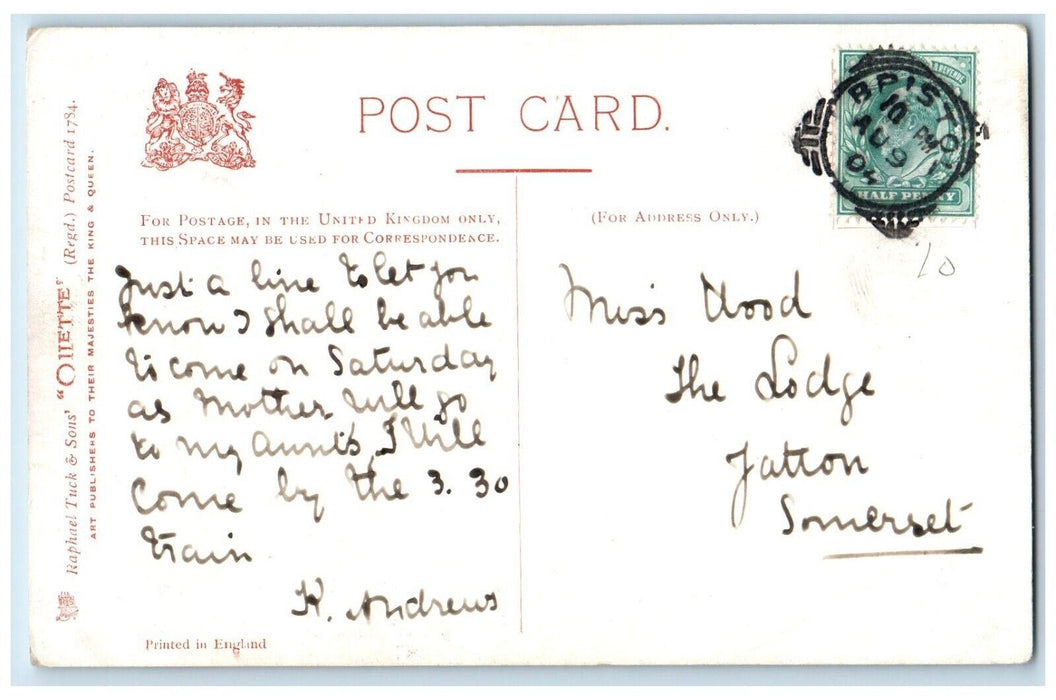 POST CARD.
FOR POSTAGE, IN THE UNITED KINGDOM ONLY,
THIS SPACE MAY BE USED FOR CORRESPONDENCE.
(FOR ADDRESS ONLY.)
Just a line to let you
know I shall be able
to come on Saturday
as Mother will go
to my aunt's, I will
come by the 3.30
train
K. Andrews
Miss Wood
The Lodge
Yatton
Somerset
BRISTO
10 PM
AU 9
04
REVENUE
HALF PENNY
10
Raphael Tuck & Sons' "OILETTE" (Regd.) Postcard 1784.
ART PUBLISHERS TO THEIR MAJESTIES THE KING & QUEEN.
Printed in England